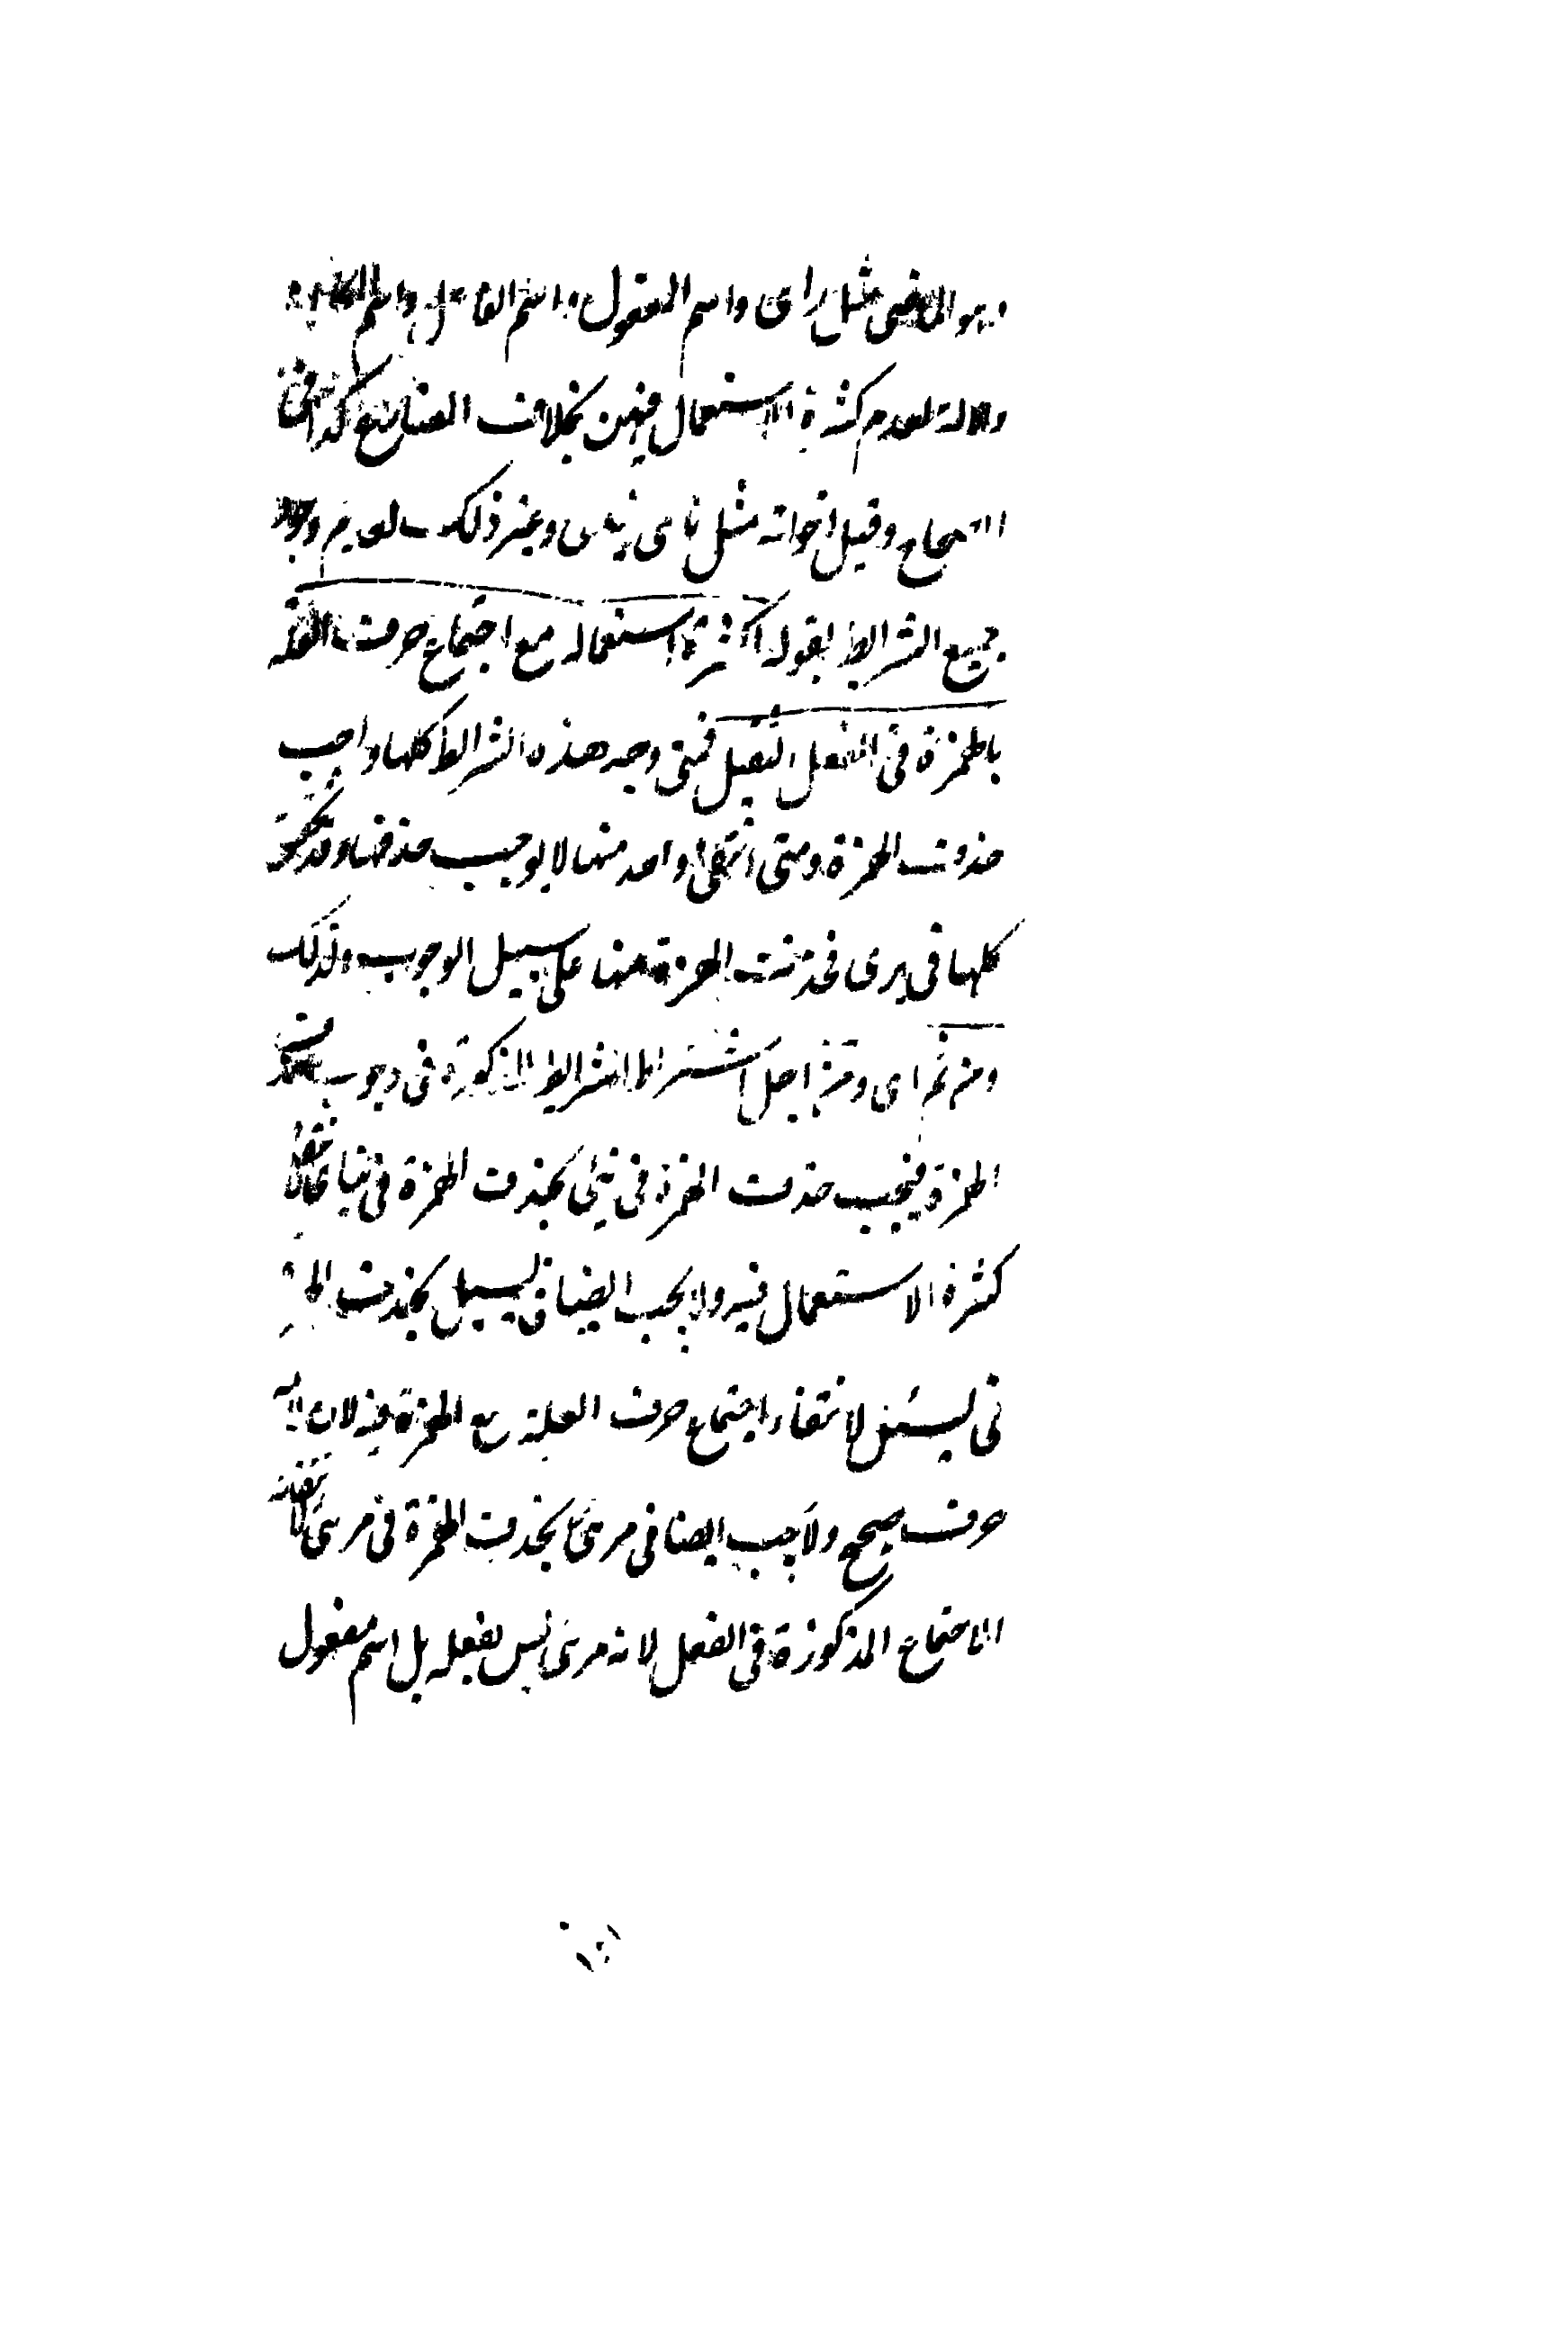 وهو الماضى مثل راى واسم المفعول واسم الفاعل واسم
والالة لعدم كثرة الاستعمال فيهن بخلاف المضارع كذا فى
الصحاح وقيل اخواته مثل ناى ينأى وغير ذلك لعدم وجود
جميع الشرايط بقوله لكثرة استعماله مع اجتماع حرف العلة
بالهمزة فى الفعل الثقيل فمتى وجد هذه الشرايط كلها واجب
حذف الهمزة ومتى انتفى واحد منها لا يوجب حذفها وقد تحقق
كلها فى يرى فحذفت الهمزة منها على سبيل الوجوب ولذلك
ومن ثم اى ومن اجل اشتراط الشرايط المذكورة فى وجوب حذف
الهمزة فيجب حذف الهمزة فى ينئى بحذف الهمزة فى
كثرة الاستعمال فيه ولا يجب ايضا فى يسيل بحذف
فى يسئل لانتفاء اجتماع حرف العلة مع الهمزة فيه لان
حرف صحيح ولا يجب ايضا فى مرئى بحذف الهمزة فى مرئى لانتفاء
الاجتماع المذكورة فى الفعل لانه مرئى ليس بفعله بل اسم مفعول